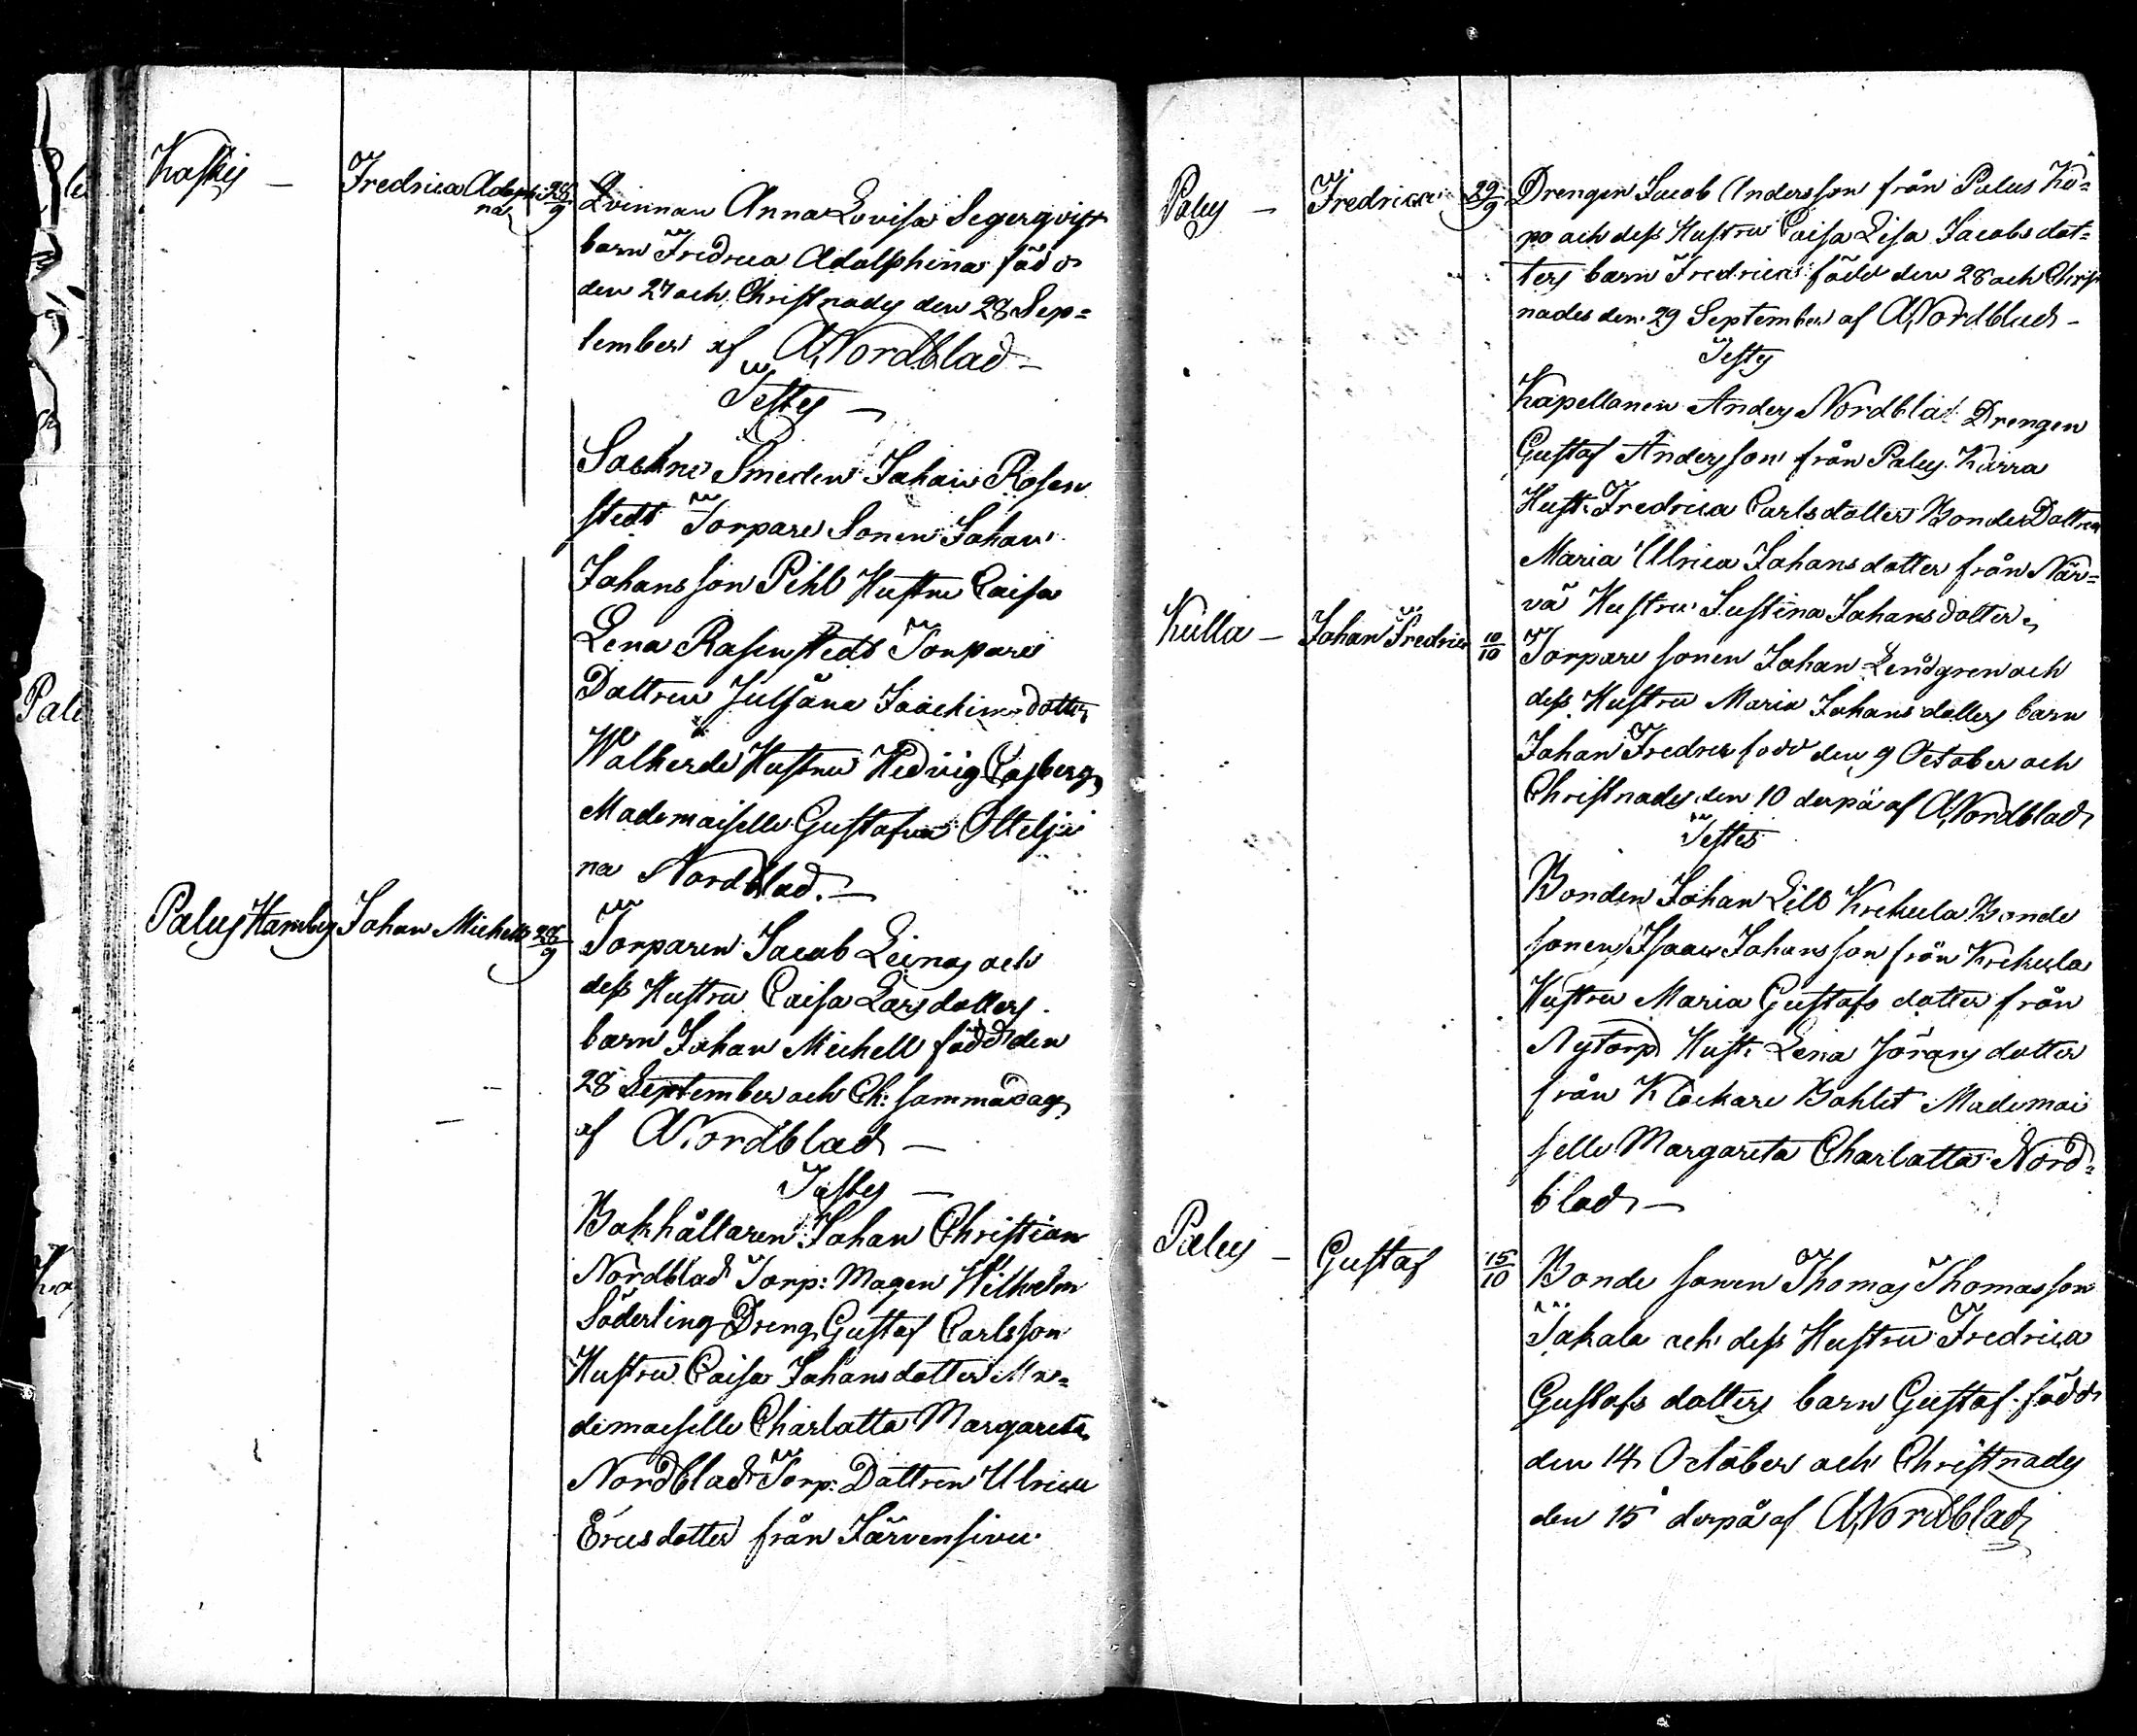 Kaskis — Fredrica Adolphi- 28/9
na
Qvinnan Anna Lovisa Segerqvist
barn Fredrica Adolphina född
den 27 och Christnades den 28 Sep=
tember af A Nordblad —
Testes —
Sockne Smeden Johan Rosen
stedt Torpare Sonen Johan
Johansson Pihl Hustru Caisa
Lena Rosenstedt Torpare
Dottren Juliana Joachimsdotter
Hustru Hedvig Casberg
Mademoiselle Gustafva Ottelji
na Nordblad. —
Palus Hamby Johan Michell 28/9
Torparen Jacob Leinas och
dess Hustru Caisa Larsdotters
barn Johan Michell född den
28 September och Ch: samma dag
af A Nordblad —
Testes —
Bokhållaren Johan Christian
Nordblad Torp: Magen Wilhelm
Söderling Dreng Gustaf Carlsson
Hustru Caisa Johansdotter Ma=
demoiselle Charlotta Margareta
Nordblad Torp: Dottren Ulrica
Ericsdotter från Järvensivu
Palus — Fredrica 29/9
Drengen Jacob Andersson från Palus Ke=
po och dess Hustru Caisa Lisa Jacobsdot=
ters barn Fredrica född den 28 och Christ
nades den 29 September af A Nordblad —
Testes
Kapellanen Anders Nordblad Drengen
Gustaf Andersson från Palus Karra
Hust: Fredrica Carlsdotter Bonde Dottren
Maria Ulrica Johansdotter från När=
vä Hustru Justina Johansdotter
Kulla — Johan Fredric 10/10
Torpare sonen Johan Lindgren och
dess Hustru Maria Johansdotters barn
Johan Fredric född den 9 October och
Christnades den 10 derpå af A Nordblad
Testes
Bonden Johan Lill Krekula Bonde
sonen Isaac Johansson från Krekula
Hustru Maria Gustafs dotter från
Nytorp Hust: Lena Jörans dotter
från Klockare Bohlet Mademoi
selle Margareta Charlotta Nord=
blad —
Palus — Gustaf 15/10
Bonde sonen Thomas Thomasson
Takala och dess Hustru Fredrica
Gustafs dotters barn Gustaf född
den 14 October och Christnades
den 15 derpå af A Nordblad